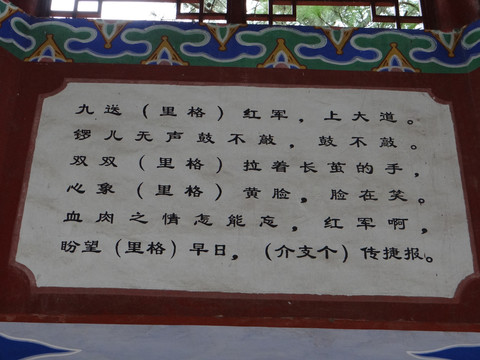 九送（里格）红军，上大道。
锣儿无声鼓不敲，鼓不敲。
双双（里格）拉着长茧的手，
心象（里格）黄脸，脸在笑。
血肉之情怎能忘，红军啊，
盼望（里格）早日，（介支个）传捷报。